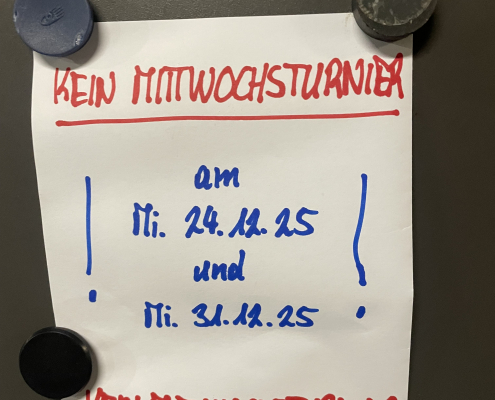 KEIN MITTWOCHSTURNIER
am
Mi. 24.12.25
und
Mi. 31.12.25